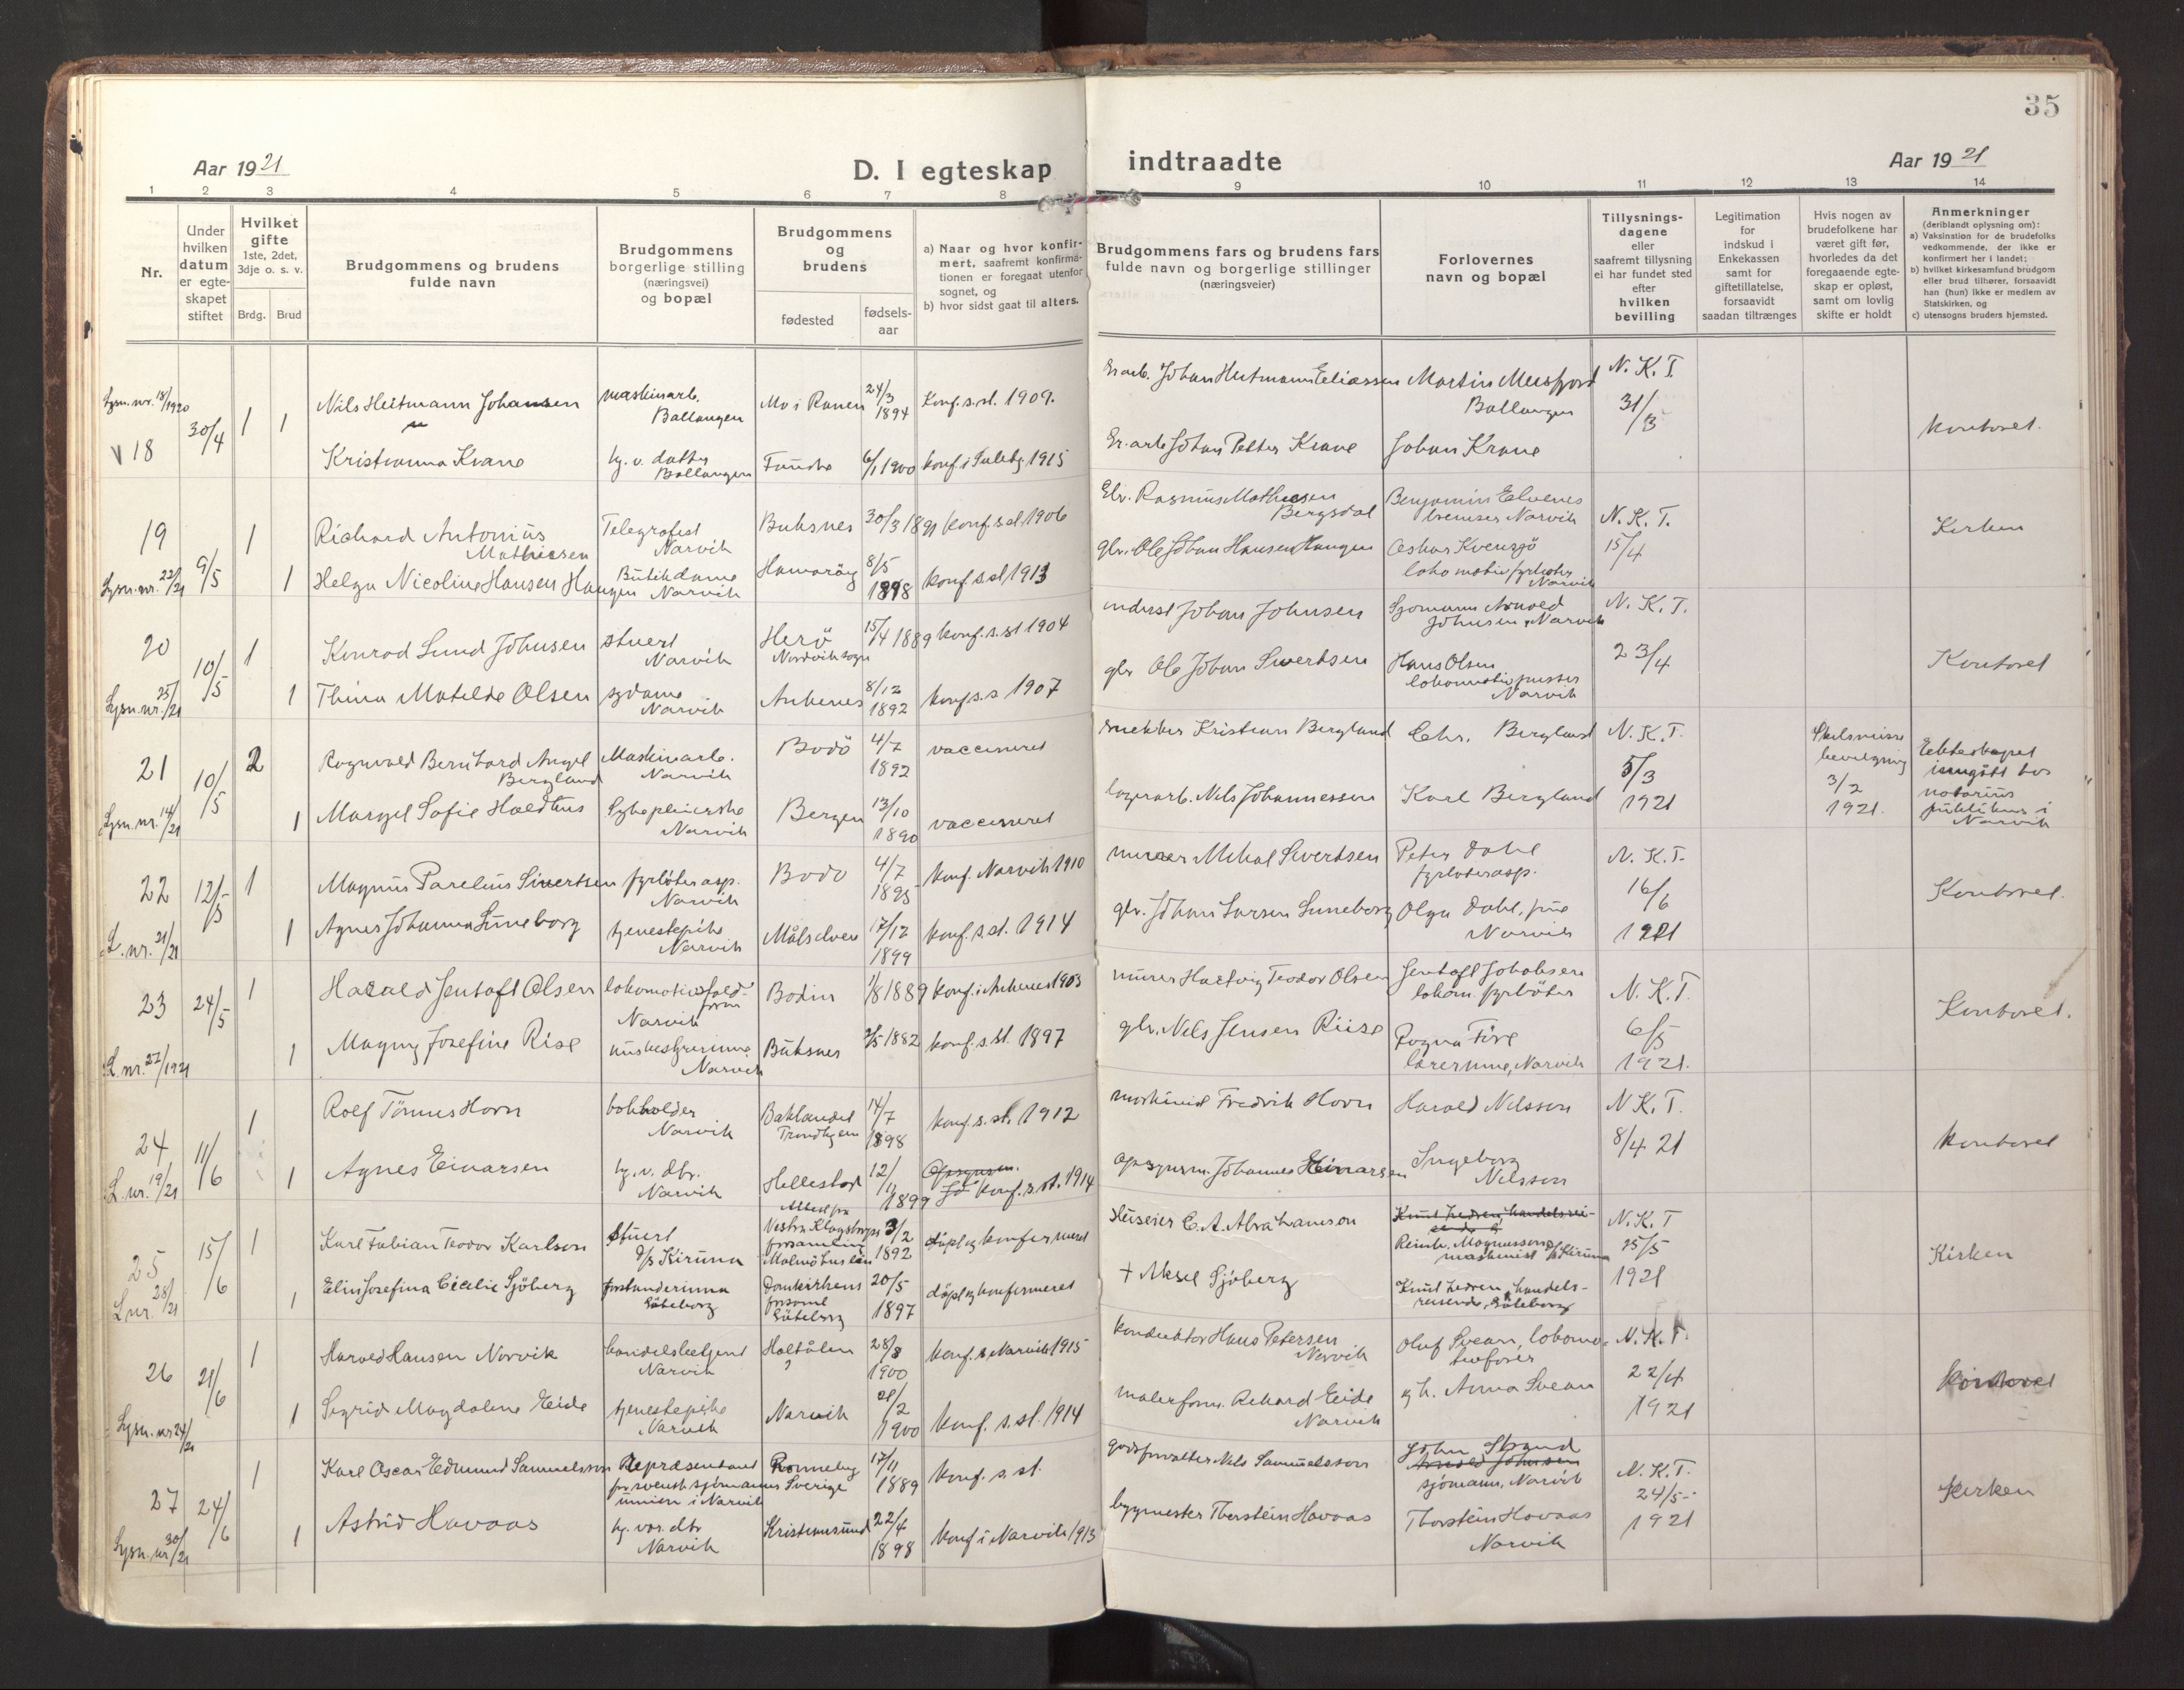 35
Aar 1921
D. I egteskap
indtraadte
Aar 1921
1 2 3 4 5 6 7 8 9 10 11 12 13 14
Nr.
Under
hvilken
datum
er egte-
skapet
stiftet
Hvilket
gifte
1ste, 2det,
3dje o. s. v.
Brdg. Brud
Brudgommens og brudens
fulde navn
Brudgommens
borgerlige stilling
(næringsvei)
og bopæl
Brudgommens
og
brudens
fødested
fødsels-
aar
a) Naar og hvor konfir-
mert, saafremt konfirma-
tionen er foregaat utenfor
sognet, og
b) hvor sidst gaat til alters.
Brudgommens fars og brudens fars
fulde navn og borgerlige stillinger
(næringsveier)
Forlovernes
navn og bopæl
Tillysnings-
dagene
eller
saafremt tillysning
ei har fundet sted
efter
hvilken
bevilling
Legitimation
for
indskud i
Enkekassen
samt for
giftetillatelse,
forsaavidt
saadan tiltrænges
Hvis nogen av
brudefolkene har
været gift før,
hvorledes da det
foregaaende egte-
skap er opløst,
samt om lovlig
skifte er holdt
Anmerkninger
(deriblandt oplysning om):
a) Vaksination for de brudefolks
vedkommende, der ikke er
konfirmert her i landet;
b) hvilket kirkesamfund brudgom
eller brud tilhører, forsaavidt
han (hun) ikke er medlem av
Statskirken, og
c) utensogns bruders hjemsted.
Lysn. nr. 18/1920
18 30/4 1 1
Nils Heitmann Johansen
maskinarb.
Ballangen
Mo i Ranen
24/3
1894
Konf. s. st. 1909.
Johan Heitmann Eliassen
Martin Meisfjord
Ballangen
N. K. T.
31/3
Kontoret.
Kristianna Krane
hj. v. datter
Ballangen
6/1 1900
Johan Petter Krane
Johan Krane
19 9/5 1
Richard Antonius
Mathiesen
Telegrafist
Narvik
Buksnes
30/3 1891
Konf. s. st. 1906
Rasmus Mathiesen
Bergsdal
Benjamin Elvenes
bremser Narvik
N. K. T.
15/4
Kirken
Lysn. nr. 22/21
1
Helga Nicoline Hansen Haugen
Butikdame
Narvik
Hamarøy
8/5
1898
konf. s. st 1913
gbr. Ole Johan Hansen Haugen
Oskar Kvensjø
lokomotivfyrbøter
Narvik
20 10/5 1
Konrad Lund Johnsen
stuert
Narvik
Herö
Nordvik sogn
15/4 1889
konf. s. st 1904
Johan Johnsen
Sjømann Arnold
Johnsen, Narvik
N. K. T.
23/4
Kontoret
Lysn. nr. 25/21
1
Thina Matilde Olsen
sydame
Narvik
Ankenes
8/12
1892
konf. s. s 1907
gbr Ole Johan Sivertsen
Hans Olsen
lokomotivpusser
Narvik
21 10/5 2
Ragnvald Bernhard Angel
Bergland
Maskinarb.
Narvik
Bodö
4/7
1892
vaccineret
snekker Kristian Bergland
Chr. Bergland
N. K. T.
5/3
1921
Skilsmisse
bevilgning
3/2
1921.
Ekteskapet
inngått hos
notarius
publikus i
Narvik
Lysn. nr. 14/21
1
Margit Sofie Holdhus
Sykepleierske
Narvik
Bergen
13/10
1890
vaccineret
lagerarb. Nils Johannessen
Karl Bergland
22 12/5 1
Magnus Parelius Sivertsen
fyrböterasp.
Narvik
Bodö
4/7
1895
konf. Narvik 1910
murer Mikal Sivertsen
Peter Dahl
fyrböterasp.
N. K. T.
16/6
1921
Kontoret.
L. nr. 21/21
1
Agnes Johanna Luneborg
tjenestepike
Narvik
Målselven
17/12
1899
konf. s. st. 1914
gbr. Johan Larsen Luneborg
Olga Dahl, frue
Narvik
23 24/5 1
Harald Jentoft Olsen
Narvik
Bodin
1/8 1889
konf. i Ankenes 1903
murer Hartvig Teodor Olsen
Jentoft Jakobsen
lokom. fyrböter
N. K. T.
6/5
1921.
Kontoret.
L. nr. 27/1921
1
Magny Josefine Rise
husbestyrerinne
Narvik
Buksnes
2/5 1882
konf. s. st. 1897
gbr. Nils Jensen Riise
Ragna Five
lærerinne, Narvik
24 11/6 1
Rolf Tönnes Horn
bokholder
Narvik
Baklandet
Trondhjem
14/7
1898
konf. s. st. 1912
maskinist Fredrik Horn
Harald Nilsson
N K. T.
8/4 21
kontoret
L. nr. 19/21
1
Agnes Einarsen
hj. v. dtr.
Narvik
Hellestad
12/11
1899
konf. s. st. 1914
opsynsm. Johannes Einarsen
Ingeborg
Nilsson
25 15/6 1
Karl Fabian Teodor Karlson
Stuert
d/s Kiruna
Attest fra
Vestra Klagstorps
forsamling
Malmöhus län
3/2
1892
döpt og konfirmeret
Huseier C. A. Abrahamson
Knut Hedren, handelsrei-
sende
Reinh. Magnusson
maskinist d/s Kiruna
N. K. T
25/5
1921
Kirken
L nr. 28/21
1
Elin Josefina Cecilie Sjöberg
forstanderinna
Göteborg
Domkirkens
forsaml
Göteborg
20/5
1897
döpt og konfirmeret
+ Aksel Sjöberg
Knut Hedren, handels-
reisende, Göteborg
26 21/6 1
Harald Hansen Narvik
handelsbetjent
Narvik
Holtålen
?
28/8
1900
konf. i Narvik 1915
konduktör Hans Petersen
Narvik
Oluf Svean, lokomo-
tivförer
N. K. T.
22/4
1921
Lysn. nr 24/21
1
Sigrid Magdalene Eide
tjenestepike
Narvik
Narvik
21/2
1900
konf. s. st. 1914
malerform. Rikard Eide
Narvik
og h. Anna Svean
27 24/6 1
Karl Oscar Edmund Samuelsson
Repræsentant
for svensk sjömanns
union i Narvik
Ronneby
Sverige
17/11
1889
konf. s. st.
godsforvalter Nils Samuelsson
John Strand
Arnold Johnsen
sjömann, Narvik
N. K. T.
24/5-
1921
Kirken
Lysn. nr 30/21
1
Astrid Havaas
hj. vær. dtr
Narvik
Kristiansund
22/4
1898
konf i Narvik 1913
bygmester Thorstein Havaas
Thorstein Havaas
Narvik